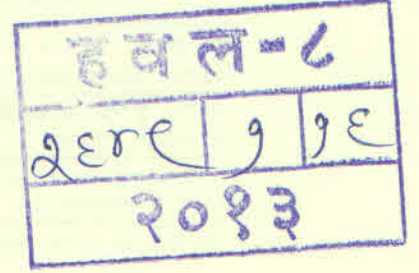 हवल-८
२६४९ १ १६
२०१३